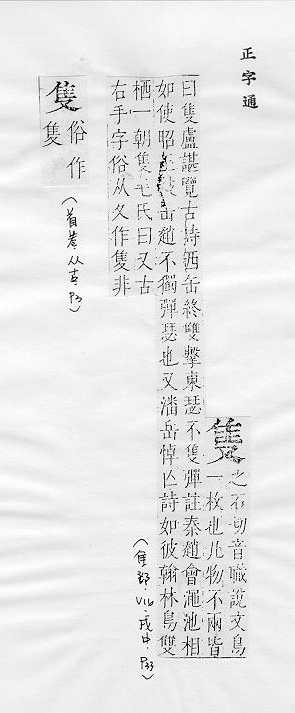 正字通
隻
之石切音職說文鳥
一枚也凡物不兩皆
曰隻盧諶覽古詩西缶終雙擊東瑟不隻彈註秦趙會澠池相
如使昭王擊缶趙不獨彈瑟也又潘岳悼亡詩如彼翰林鳥雙
栖一朝隻毛氏曰又古
右手字俗从夂作隻非
(隹部.V16.戌中.P33)
隻
俗作
隻
(首卷.从古.P3)